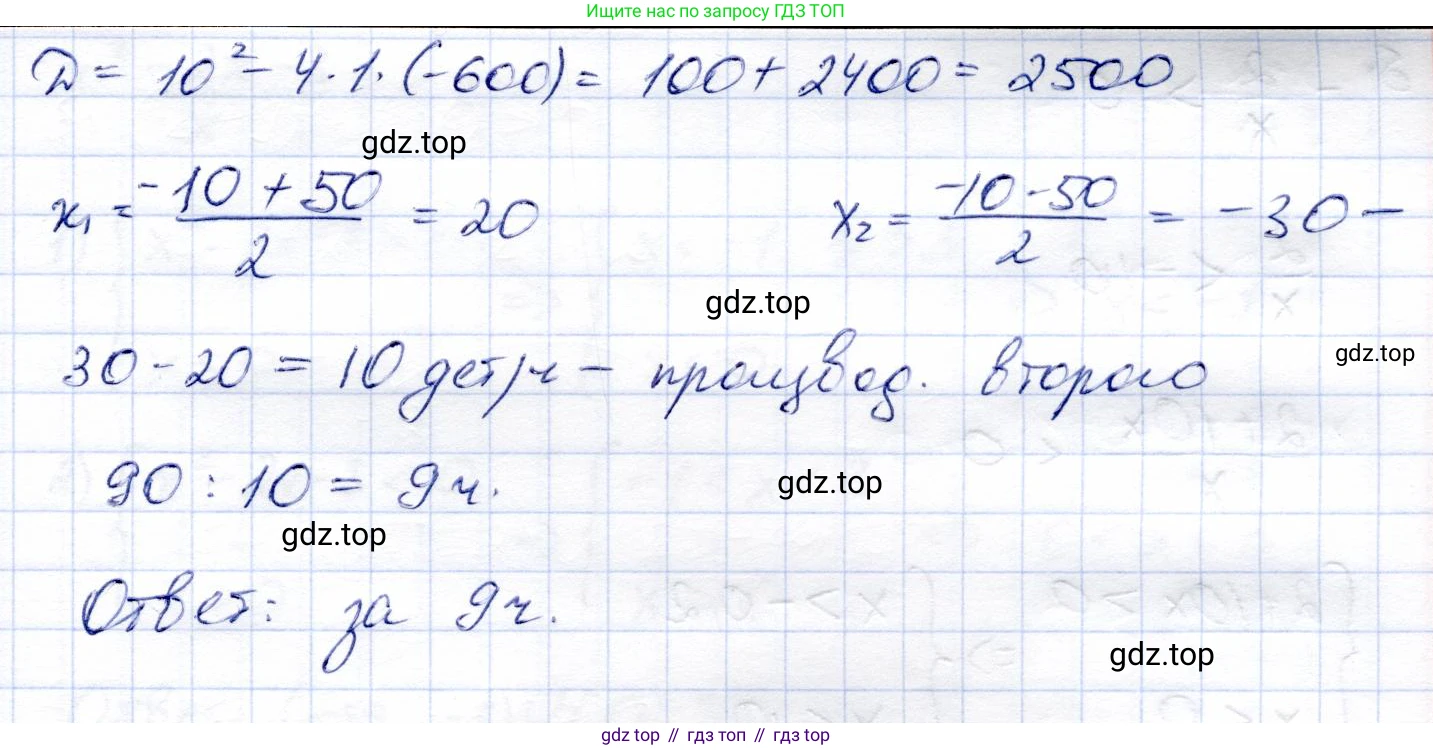 Ищите нас по запросу ГДЗ ТОП
D = 10² - 4 · 1 · (-600) = 100 + 2400 = 2500
gdz.top
x₁ = (-10 + 50)/2 = 20 x₂ = (-10 - 50)/2 = -30 -
gdz.top
gdz.top
30 - 20 = 10 дет/ч - производ. второго
90 : 10 = 9 ч.
gdz.top
gdz.top
Ответ: за 9 ч.
gdz.top
gdz top // гдз топ // гдз top